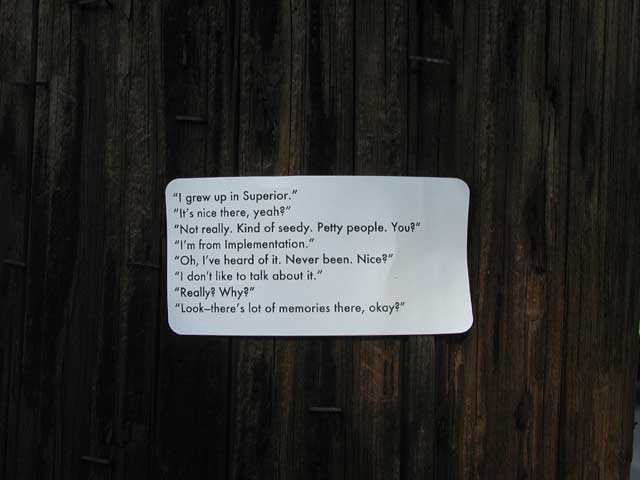 "I grew up in Superior."
"It's nice there, yeah?"
"Not really. Kind of seedy. Petty people. You?"
"I'm from Implementation."
"Oh, I've heard of it. Never been. Nice?"
"I don't like to talk about it."
"Really? Why?"
"Look—there's lot of memories there, okay?"